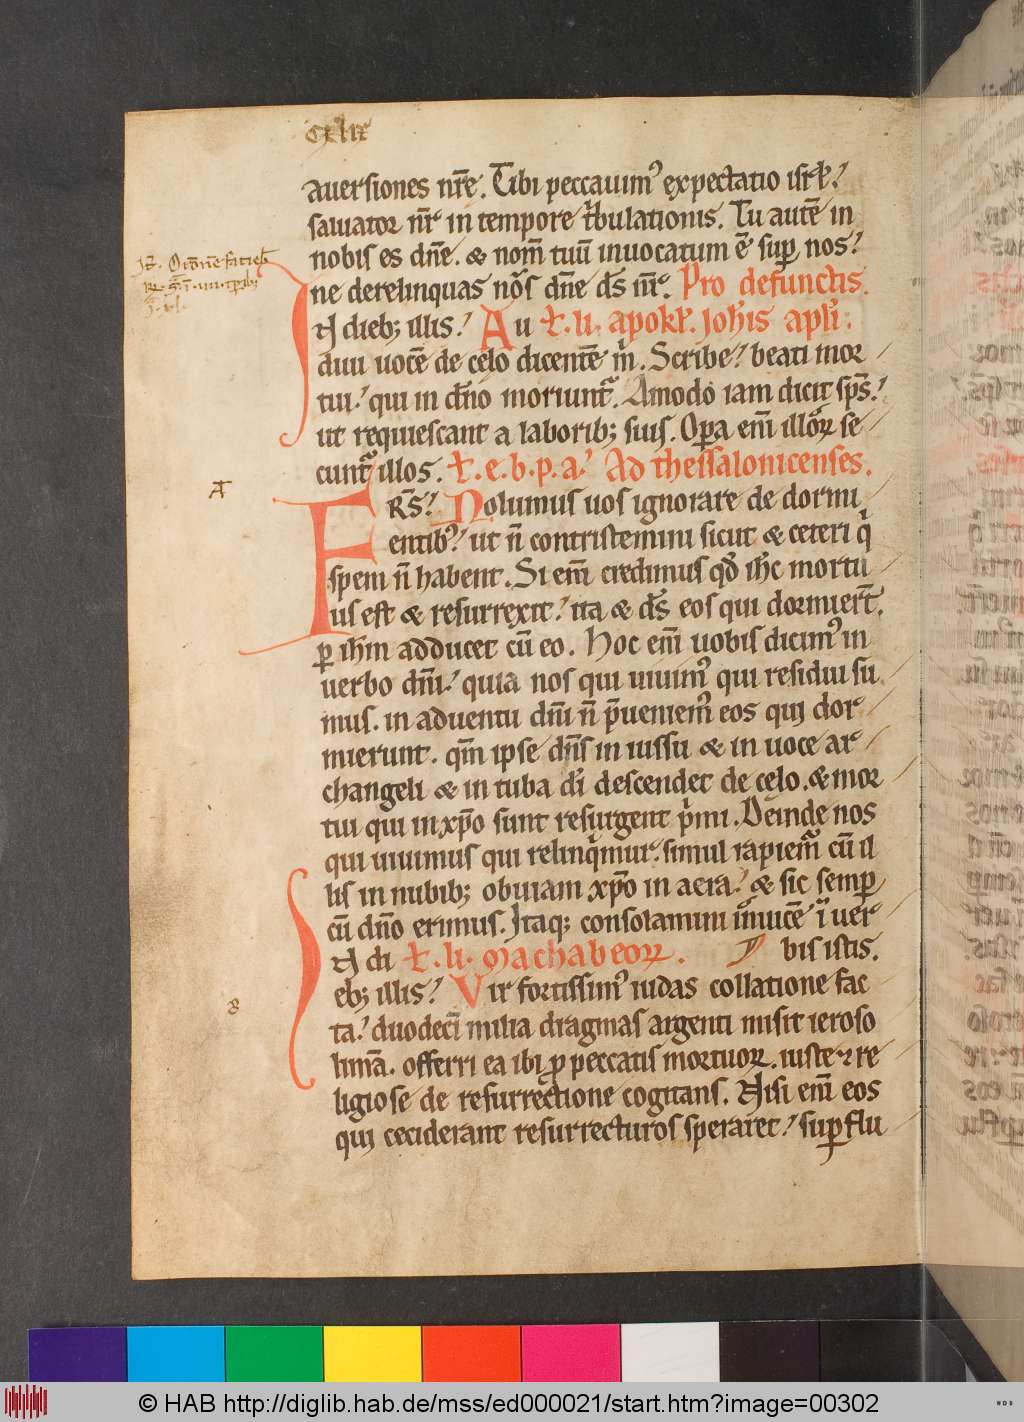 cxlix
auersiones nr̄e. Tibi peccauim⁹ expectatio isr̄l.
saluator nr̄ in tempore tⁱbulationis. Tu autē in
nobis es dn̄e. & nom̄ tuū inuocatum ē sup̱ nos.
ne derelinquas nos dn̄e ds̄ nr̄. Pro defunctis.
IN dieb; illis. Au t̄. li. apokl̄. Joh̄is apl̄i.
diui uocē de celo dicentē m̄. Scribe. beati mor
tui. qui in dn̄o moriunt᷑. Amodo iam dicit sp̄s.
ut requiescant a laborib; suis. Op̱a em̄ illoꝝ se
cunt᷑ illos. t̄. e. b. p. a. Ad thessalonicenses.
FRS̄. Nolumus uos ignorare de dormi
entib⁹. ut n̄ contristemini sicut & ceteri qⁱ
spem n̄ habent. Si em̄ credimus qđ ih̄c mortu
us est & resurrexit. ita & ds̄ eos qui dormiert̄.
p̱ ih̄m adducet cū eo. Hoc em̄ uobis dicim⁹ in
uerbo dn̄i. quia nos qui uiuim⁹ qui residui su
mus. in aduentu dn̄i n̄ p̄ueniem⁹ eos qui dor
mierunt. qm̄ ipse dn̄s in iussu & in uoce ar
changeli & in tuba dī descendet de celo. & mor
tui qui in xp̄o sunt resurgent pⁱmi. Deinde nos
qui uiuimus qui relinqⁱmur. simul rapiem᷑ cū il
lis in nubib; obuiam xp̄o in aera. & sic semp̱
cū dn̄o erimus. Itaq; consolamini inuicē ī uer
IN di t̄. li. Machabeoꝝ. bis istis.
eb; illis. Vir fortissim⁹ iudas collatione fac
ta. duodecī milia dragmas argenti misit ieroso
limā. offerri ea ibi ꝓ peccatis mortuoꝝ. iuste ⁊ re
ligiose de resurrectione cogitans. Nisi em̄ eos
qui ceciderant resurrecturos speraret. sup̱flu
A
8
© HAB http://diglib.hab.de/mss/ed000021/start.htm?image=00302